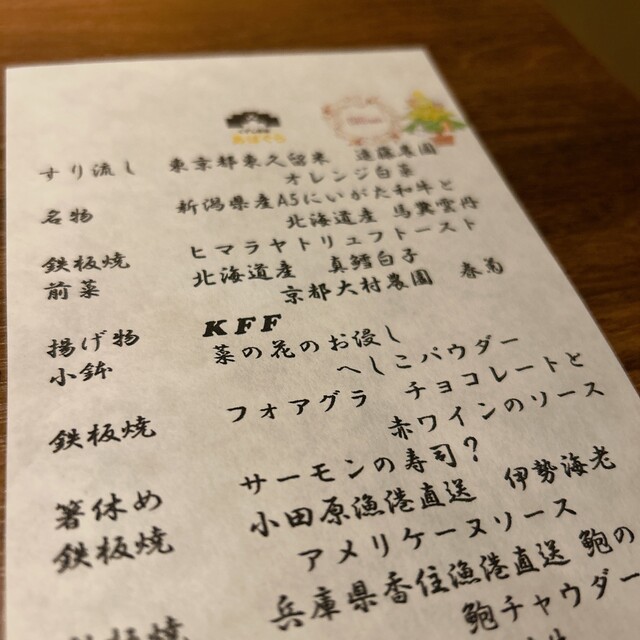 すり流し 東京都東久留米 遠藤農園
オレンジ白菜
名物 新潟県産A5にいがた和牛と
北海道産 馬糞雲丹
ヒマラヤトリュフトースト
鉄板焼 北海道産 真鱈白子
前菜 京都大村農園 春菊
揚げ物 KFF
小鉢 菜の花のお浸し
へしこパウダー
鉄板焼 フォアグラ チョコレートと
赤ワインのソース
箸休め サーモンの寿司?
鉄板焼 小田原漁港直送 伊勢海老
アメリケーヌソース
鉄板焼 兵庫県香住漁港直送 鮑の
鮑チャウダー